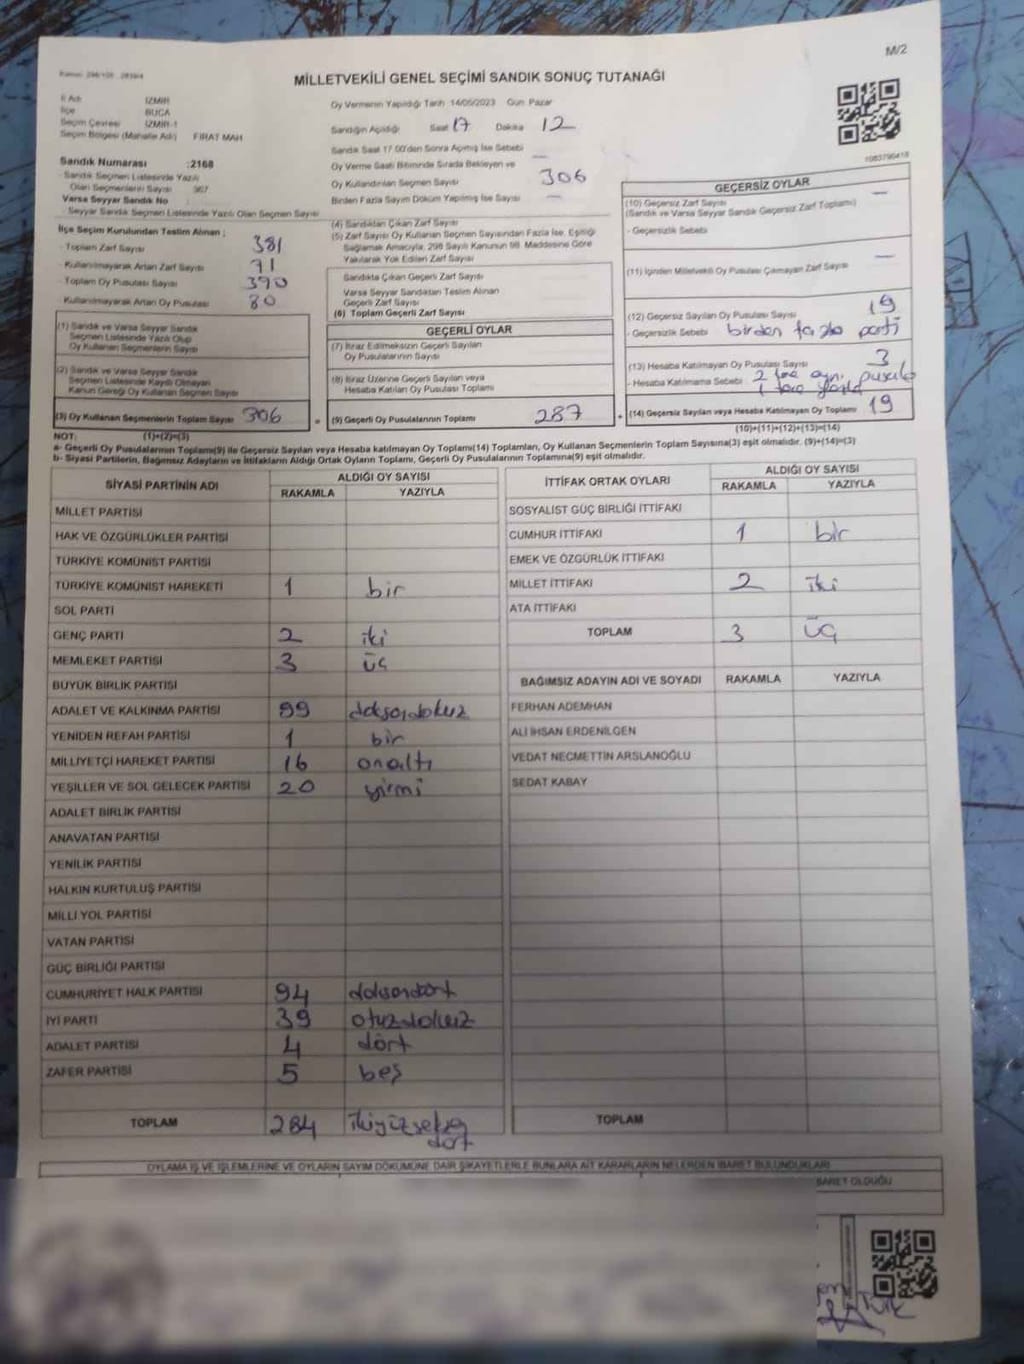 M/2
MİLLETVEKİLİ GENEL SEÇİMİ SANDIK SONUÇ TUTANAĞI
İl Adı İZMİR
İlçe BUCA
Seçim Çevresi İZMİR-1
Seçim Bölgesi (Mahalle Adı) FIRAT MAH
Sandık Numarası :2168
- Sandık Seçmen Listesinde Yazılı
Olan Seçmenlerin Sayısı 367
Varsa Seyyar Sandık No
Seyyar Sandık Seçmen Listesinde Yazılı Olan Seçmen Sayısı
Oy Vermenin Yapıldığı Tarih 14/05/2023 Gün Pazar
Sandığın Açıldığı Saat 17 Dakika 12
Sandık Saat 17.00'den Sonra Açılmış İse Sebebi
Oy Verme Saati Bitiminde Sırada Bekleyen ve
Oy Kullandırılan Seçmen Sayısı 306
Birden Fazla Sayım Döküm Yapılmış İse Sayısı
1083790418
İlçe Seçim Kurulundan Teslim Alınan ;
- Toplam Zarf Sayısı 381
- Kullanılmayarak Artan Zarf Sayısı 71
- Toplam Oy Pusulası Sayısı 390
- Kullanılmayarak Artan Oy Pusulası 80
(1) Sandık ve Varsa Seyyar Sandık
Seçmen Listesinde Yazılı Olup
Oy Kullanan Seçmenlerin Sayısı
(2) Sandık ve Varsa Seyyar Sandık
Seçmen Listesinde Kaydı Olmayan
Kanun Gereği Oy Kullanan Seçmen Sayısı
(3) Oy Kullanan Seçmenlerin Toplam Sayısı 306
(4) Sandıktan Çıkan Zarf Sayısı
(5) Zarf Sayısı Oy Kullanan Seçmen Sayısından Fazla İse, Eşitliği
Sağlamak Amacıyla, 298 Sayılı Kanunun 98. Maddesine Göre
Yakılarak Yok Edilen Zarf Sayısı
Sandıkta Çıkan Geçerli Zarf Sayısı
Varsa Seyyar Sandıktan Teslim Alınan
Geçerli Zarf Sayısı
(6) Toplam Geçerli Zarf Sayısı
GEÇERLİ OYLAR
(7) İtiraz Edilmeksizin Geçerli Sayılan
Oy Pusulalarının Sayısı
(8) İtiraz Üzerine Geçerli Sayılan veya
Hesaba Katılan Oy Pusulası Toplamı
= (9) Geçerli Oy Pusulalarının Toplamı 287
GEÇERSİZ OYLAR
(10) Geçersiz Zarf Sayısı
(Sandık ve Varsa Seyyar Sandık Geçersiz Zarf Toplamı)
- Geçersizlik Sebebi
(11) İçinden Milletvekili Oy Pusulası Çıkmayan Zarf Sayısı
(12) Geçersiz Sayılan Oy Pusulası Sayısı 19
- Geçersizlik Sebebi birden fazla parti
(13) Hesaba Katılmayan Oy Pusulası Sayısı 3
- Hesaba Katılmama Sebebi 2 tane aynı pusula
1 tane
+ (14) Geçersiz Sayılan veya Hesaba Katılmayan Oy Toplamı 19
(10)+(11)+(12)+(13)=(14)
NOT: (1)+(2)=(3)
a- Geçerli Oy Pusulalarının Toplamı(9) ile Geçersiz Sayılan veya Hesaba katılmayan Oy Toplamı(14) Toplamları, Oy Kullanan Seçmenlerin Toplam Sayısına(3) eşit olmalıdır. (9)+(14)=(3)
b- Siyasi Partilerin, Bağımsız Adayların ve İttifakların Aldığı Ortak Oyların Toplamı, Geçerli Oy Pusulalarının Toplamına(9) eşit olmalıdır.
SİYASİ PARTİNİN ADI ALDIĞI OY SAYISI
RAKAMLA YAZIYLA
MİLLET PARTİSİ
HAK VE ÖZGÜRLÜKLER PARTİSİ
TÜRKİYE KOMÜNİST PARTİSİ
TÜRKİYE KOMÜNİST HAREKETİ 1 bir
SOL PARTİ
GENÇ PARTİ 2 iki
MEMLEKET PARTİSİ 3 üç
BÜYÜK BİRLİK PARTİSİ
ADALET VE KALKINMA PARTİSİ 99 doksandokuz
YENİDEN REFAH PARTİSİ 1 bir
MİLLİYETÇİ HAREKET PARTİSİ 16 onaltı
YEŞİLLER VE SOL GELECEK PARTİSİ 20 yirmi
ADALET BİRLİK PARTİSİ
ANAVATAN PARTİSİ
YENİLİK PARTİSİ
HALKIN KURTULUŞ PARTİSİ
MİLLİ YOL PARTİSİ
VATAN PARTİSİ
GÜÇ BİRLİĞİ PARTİSİ
CUMHURİYET HALK PARTİSİ 94 doksandört
İYİ PARTİ 39 otuzdokuz
ADALET PARTİSİ 4 dört
ZAFER PARTİSİ 5 beş
TOPLAM 284 ikiyüzseksen
dört
İTTİFAK ORTAK OYLARI ALDIĞI OY SAYISI
RAKAMLA YAZIYLA
SOSYALİST GÜÇ BİRLİĞİ İTTİFAKI
CUMHUR İTTİFAKI 1 bir
EMEK VE ÖZGÜRLÜK İTTİFAKI
MİLLET İTTİFAKI 2 iki
ATA İTTİFAKI
TOPLAM 3 üç
BAĞIMSIZ ADAYIN ADI VE SOYADI RAKAMLA YAZIYLA
FERHAN ADEMHAN
ALİ İHSAN ERDENİLGEN
VEDAT NECMETTİN ARSLANOĞLU
SEDAT KABAY
TOPLAM
OYLAMA İŞ VE İŞLEMLERİNE VE OYLARIN SAYIM DÖKÜMÜNE DAİR ŞİKAYETLERLE BUNLARA AİT KARARLARIN NELERDEN İBARET BULUNDUKLARI